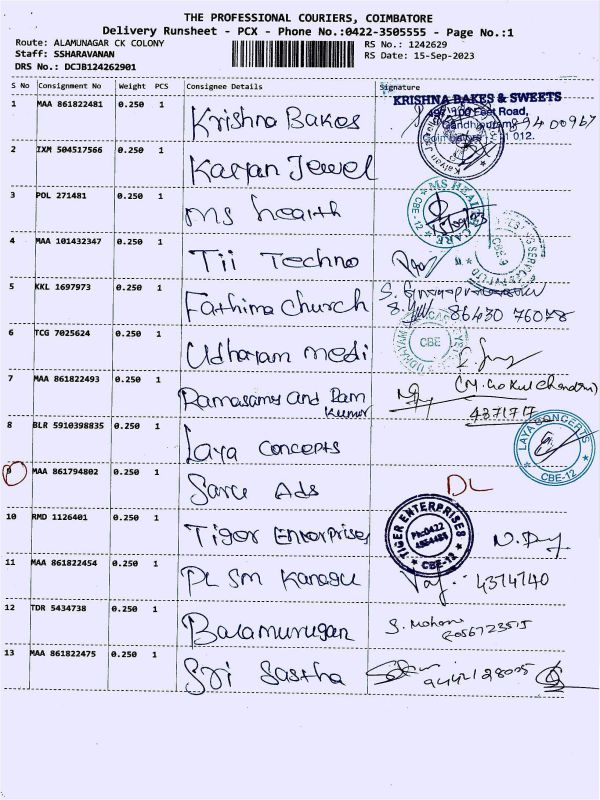 THE PROFESSIONAL COURIERS, COIMBATORE
Delivery Runsheet - PCX - Phone No.:0422-3505555 - Page No.:1
Route: ALAMUNAGAR CK COLONY RS No.: 1242629
Staff: SSHARAVANAN RS Date: 15-Sep-2023
DRS No.: DCJB124262901
S No Consignment No Weight PCS Consignee Details Signature
KRISHNA BAKES & SWEETS
1 MAA 861822481 0.250 1 Krishna Bakes
2 IXM 504517566 0.250 1 Kalyan Jewel
3 POL 271481 0.250 1 Ms health
4 MAA 101432347 0.250 1 Tii Techno
5 KKL 1697973 0.250 1 Fathima Church
86430 76078
6 TCG 7025624 0.250 1 Udhayam medi CBE
7 MAA 861822493 0.250 1 Ramasamy and Ram
Kumar
4371717
8 BLR 5910398835 0.250 1 Laya Concepts LAYA CONCERTS CBE-12
9 MAA 861794802 0.250 1 Sarve Ads DL
10 RMD 1126401 0.250 1 Tiger Enterprises TIGER ENTERPRISES CBE-12
11 MAA 861822454 0.250 1 PL Sm Kanagu 4374740
12 TDR 5434738 0.250 1 Balamurugan S. Mohan
13 MAA 861822475 0.250 1 Sri Sastha